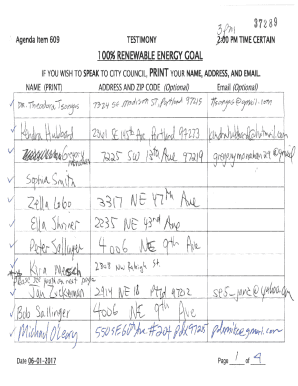 37289
Agenda Item 609 TESTIMONY 2:00 PM TIME CERTAIN
3pm
100% RENEWABLE ENERGY GOAL
IF YOU WISH TO SPEAK TO CITY COUNCIL, PRINT YOUR NAME, ADDRESS, AND EMAIL.
NAME (PRINT) ADDRESS AND ZIP CODE (Optional) Email (Optional)
Dr. Theodora Tsongas 7324 SE Madison St, Portland 97215 ttsongas@gmail.com
Hubbard Ave, Portland
Gregory Monahan 7225 SW 13th Ave 97219 gregorymonahan29@gmail
Sophia Smith
Zella Lobo 3317 NE 47th Ave
Ella Shriner 2235 NE 43rd Ave
Peter Sallinger 4006 NE 9th Ave
Kira NW Raleigh St
Please See on next page
Jan Zuckerman 2914 NE 18 Ptld 97212
Bob Sallinger 4006 NE 9th Ave
Michael O'Leary 5505 SE Ave #204 pdx
Date 06-01-2017 Page 1 of 4